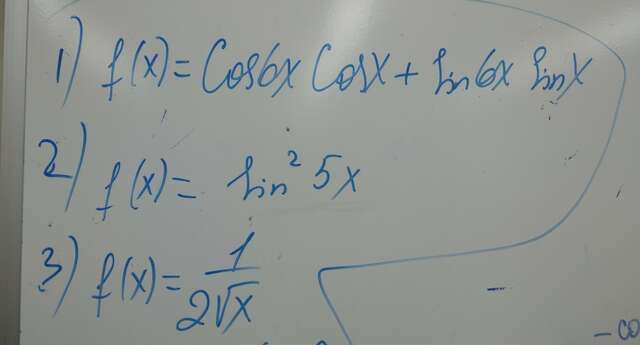 1) f(x) = Cos6x Cosx + sin6x sinx
2) f(x) = sin² 5x
3) f(x) = 1/(2√x)